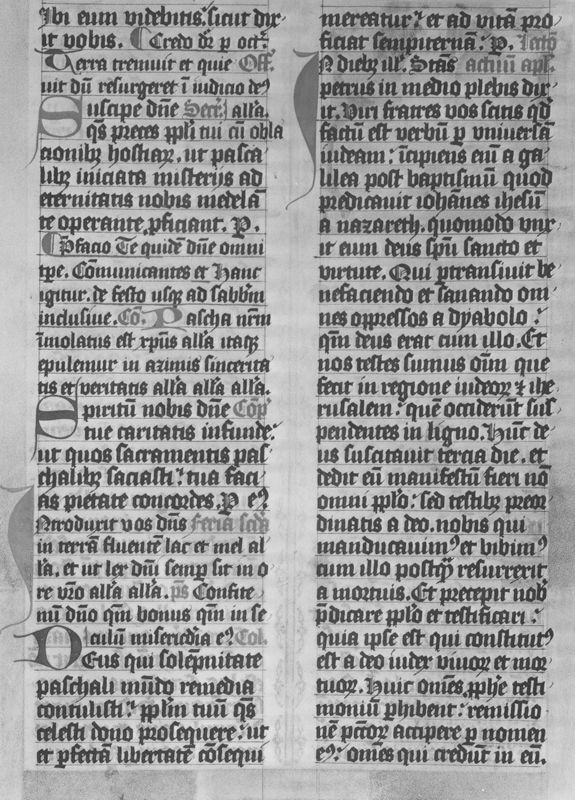 Ibi eum videbitis. sicut dix
it vobis. Credo dr̄ p oct̄.
Terra tremuit et quie Off.
uit dū resurgeret ī iudicio deꝰ
Suscipe dn̄e Secr̄. all'a.
q̄s preces ppl'i tui cū obla
tionibꝫ hostiaꝝ. ut pasca
libꝫ iniciata misterijs ad
eternitatis nobis medelā
te operante, ꝓficiant. P.
P̄facio Te quidē dn̄e omni
tp̄e. Cōmunicantes et Hanc
igitur. de festo usqꝫ ad sabb̄m
inclusiue. Cō. Pascha nr̄m
īmolatus est xp̄us all'a itaqꝫ
epulemur in azimis sincerita
tis et veritatis all'a all'a all'a.
Spiritū nobis dn̄e Cōp̄
tue caritatis infunde:
ut quos sacramentis pas
chalibꝫ saciasti: tua faci
as pietate concordes. P eꝰ
Introduxit vos dn̄s feria scd̄a
in terrā fluentē lac et mel al
l'a. et ut lex dn̄i semp̄ sit in o
re vr̄o all'a all'a. p̄s Confite
mī dn̄o qm̄ bonus qm̄ in se
culum misericordia eꝰ Col.
Deus qui solēpnitate
paschali mūdo remedia
contulisti: ppl'm tuū q̄s
celesti dono prosequere: ut
et ꝑfectā libertatē cōsequi
mereatur: et ad vitā pro
ficiat sempiternā: P. Lectō
In diebꝫ ill'. Stās actuū apl'.
petrus in medio plebis dix
it. Viri fratres vos scitis qd̄
factū est verbū ꝑ vniuersā
iudeam: īcipiens eni a ga
lilea post baptismū quod
predicauit iohānes ihesū
a nazareth. quomodo vnx
it eum deus sp̄u sancto et
virtute. Qui ꝑtransiuit be
nefaciendo et sanando om
nes oppressos a dyabolo:
qm̄ deus erat cum illo. Et
nos testes sumus oīm que
fecit in regione iudeoꝝ et ihe
rusalem: quē occiderūt sus
pendentes in ligno. Hūc de
us suscitauit tercia die. et
dedit eū manifestū fieri nō
omni ppl'o: sed testibꝫ preor
dinatis a deo. nobis qui
manducauimꝰ et bibimꝰ
cum illo postqꝫ resurrexit
a mortuis. Et precepit nob̄
p̄dicare ppl'o et testificari:
quia ipse est qui constitutꝰ
est a deo iudex viuoꝝ et mor
tuoꝝ. Huic omēs. ꝓphe testi
monium ꝑhibent: remissio
nē pctōꝝ accipere ꝑ nomen
eꝰ: omēs qui credūt in eū.